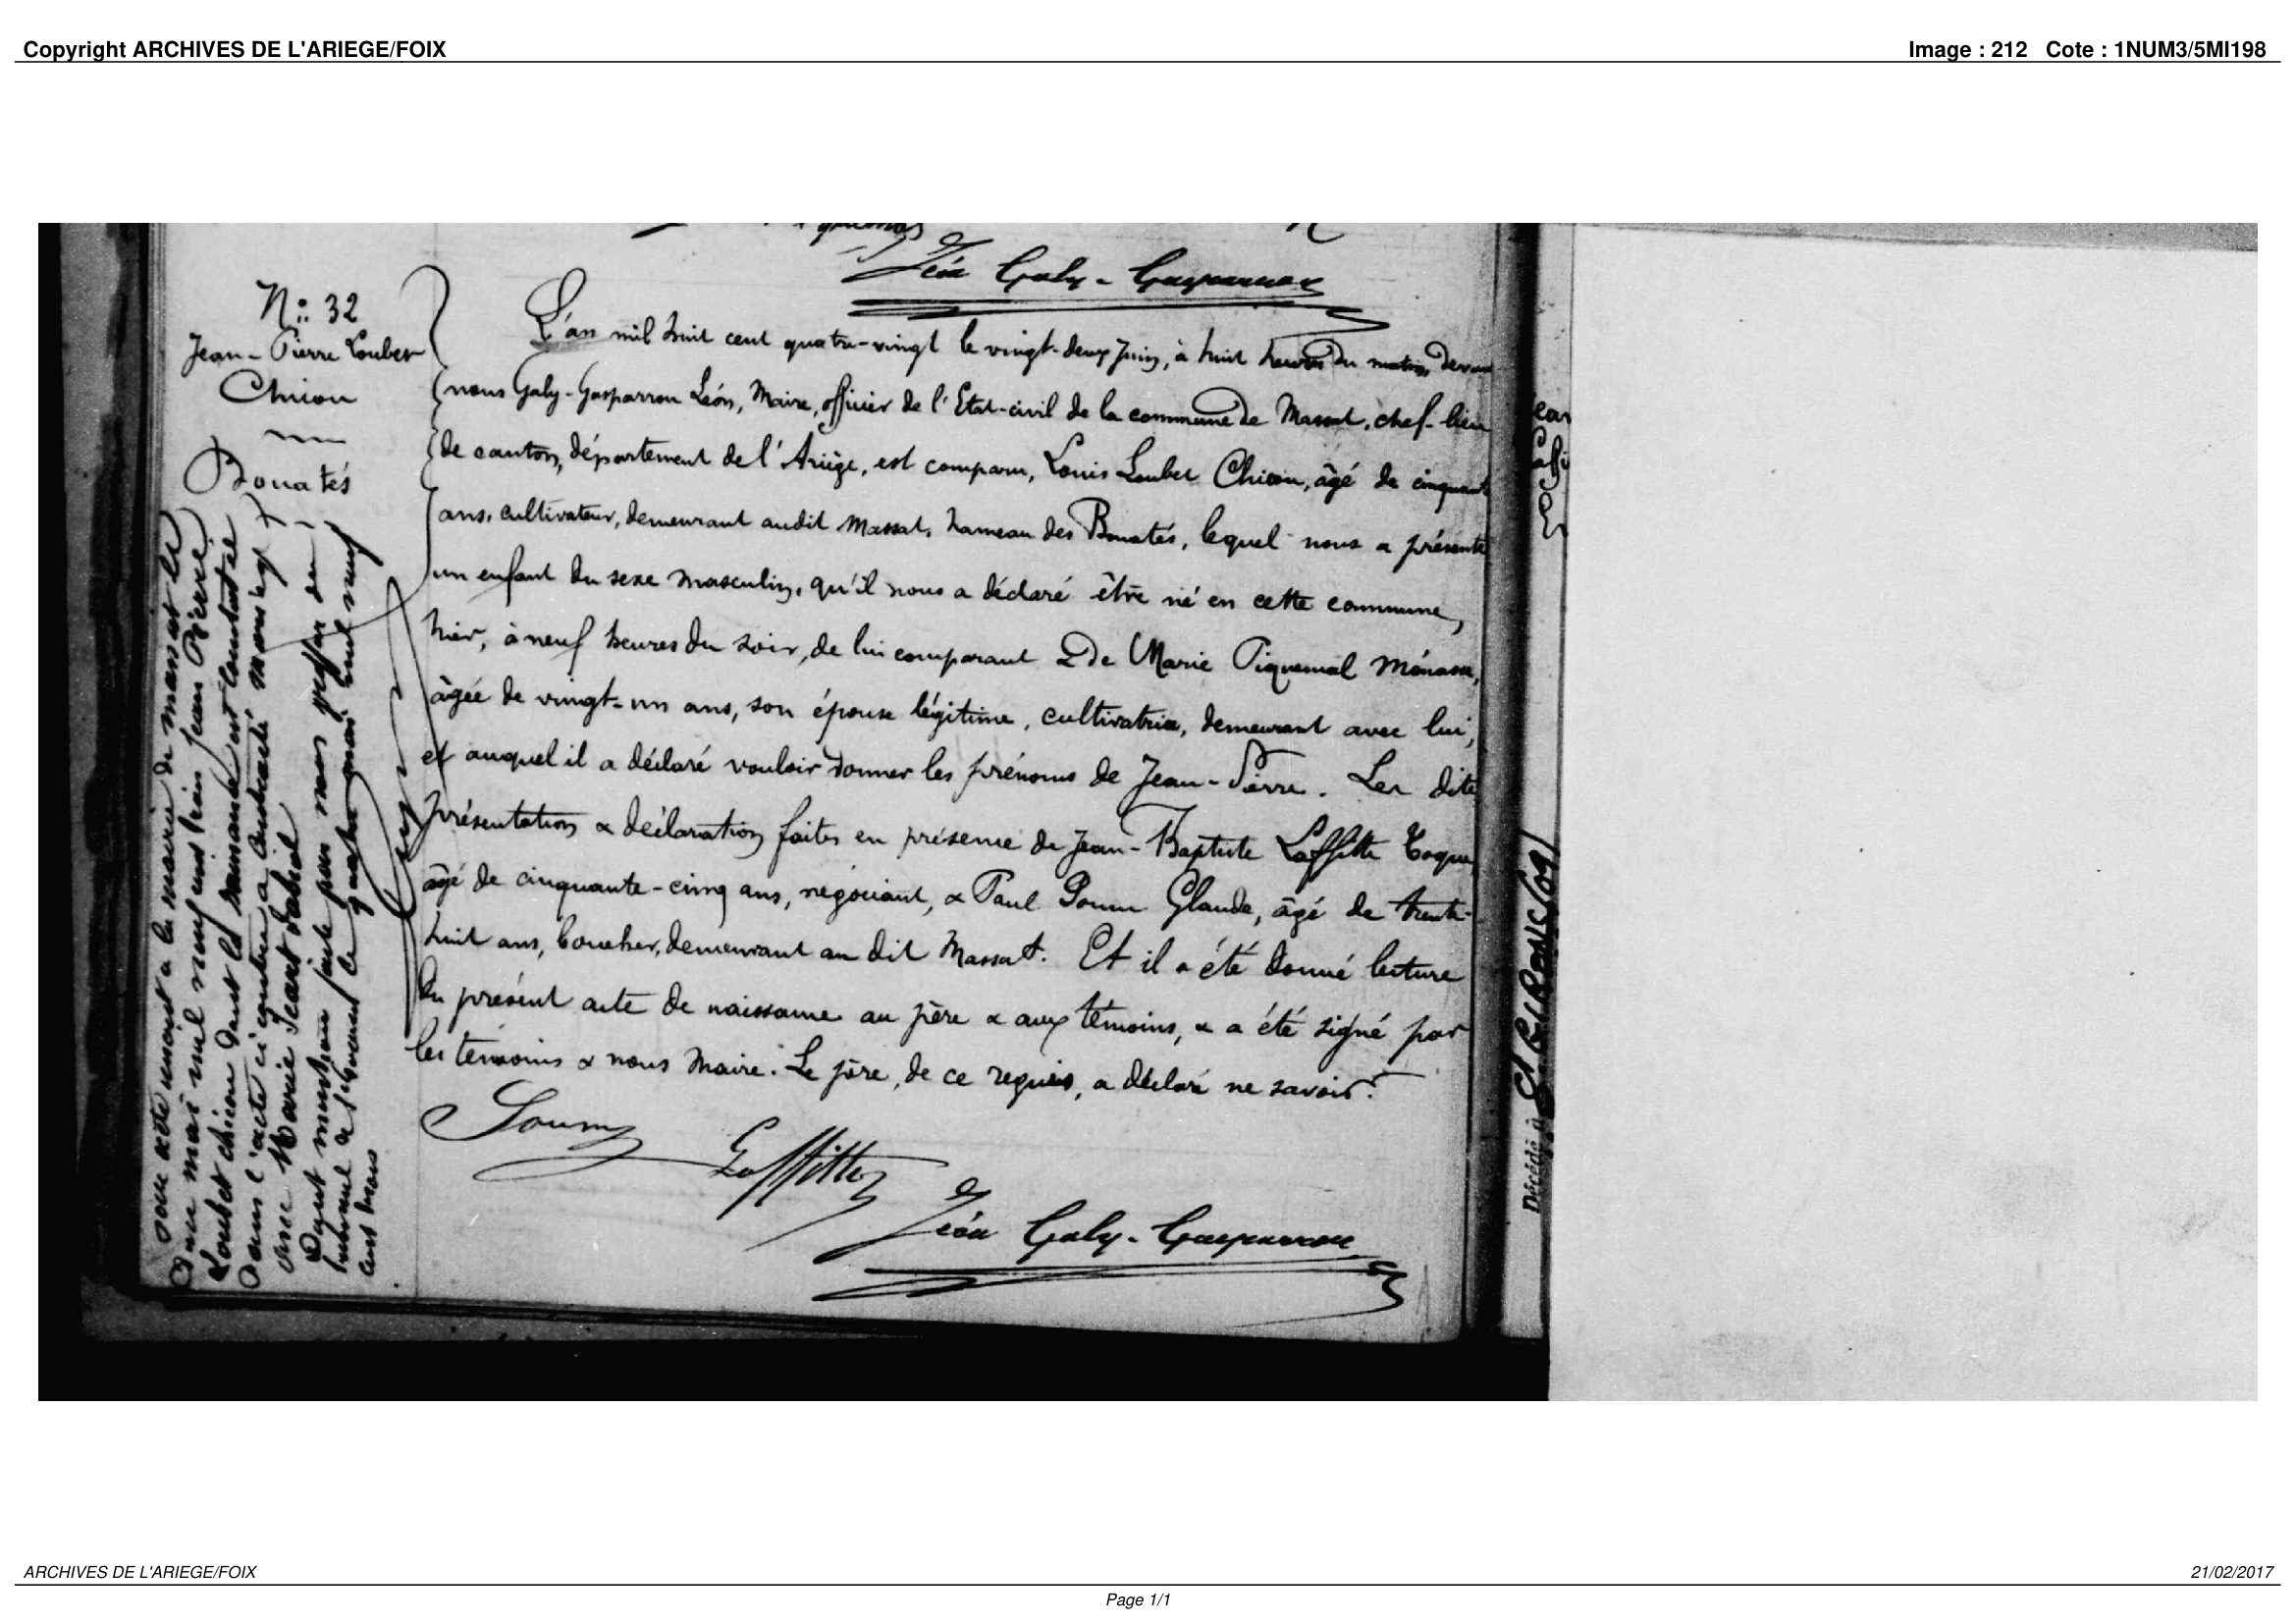 Copyright ARCHIVES DE L'ARIEGE/FOIX
Image : 212 Cote : 1NUM3/5MI198
Léon Galy-Gasparrou
N° 32
Jean-Pierre Loubet
Chicou
Bouatés
L'an mil huit cent quatre-vingt le vingt-deux Juin, à huit heures du matin, devant
nous Galy-Gasparrou Léon, Maire, officier de l'Etat-civil de la commune de Massat, chef-lieu
de canton, département de l'Ariège, est comparu, Louis Loubet Chicou, âgé de cinquante
ans, cultivateur, demeurant audit Massat, hameau des Bouatés, lequel nous a présenté
un enfant du sexe masculin, qu'il nous a déclaré être né en cette commune,
hier, à neuf heures du soir, de lui comparant & de Marie Piquemal
âgée de vingt-un ans, son épouse légitime, cultivatrice, demeurant avec lui,
et auquel il a déclaré vouloir donner les prénoms de Jean-Pierre. Les dites
présentation & déclaration faites en présence de Jean-Baptiste Laffitte
âgé de cinquante-cinq ans, négociant, & Paul Soum Glaude, âgé de trente-
huit ans, boucher, demeurant au dit Massat. Et il a été donné lecture
du présent acte de naissance au père & aux témoins, & a été signé par
les témoins & nous Maire. Le père, de ce requis, a déclaré ne savoir.
Soum
Laffitte
Léon Galy-Gasparrou
acte inscrit à la mairie de massat le
mai mil neuf cent Jean Pierre
Loubet chicou dont la naissance est constatée
dans l'acte ci contre a contracté mariage
avec Marie
Dont mention faite par nous greffier du
tribunal de le quatre mai mil neuf
cent trois
Décédé à ST GIRONS (09)
ARCHIVES DE L'ARIEGE/FOIX
21/02/2017
Page 1/1